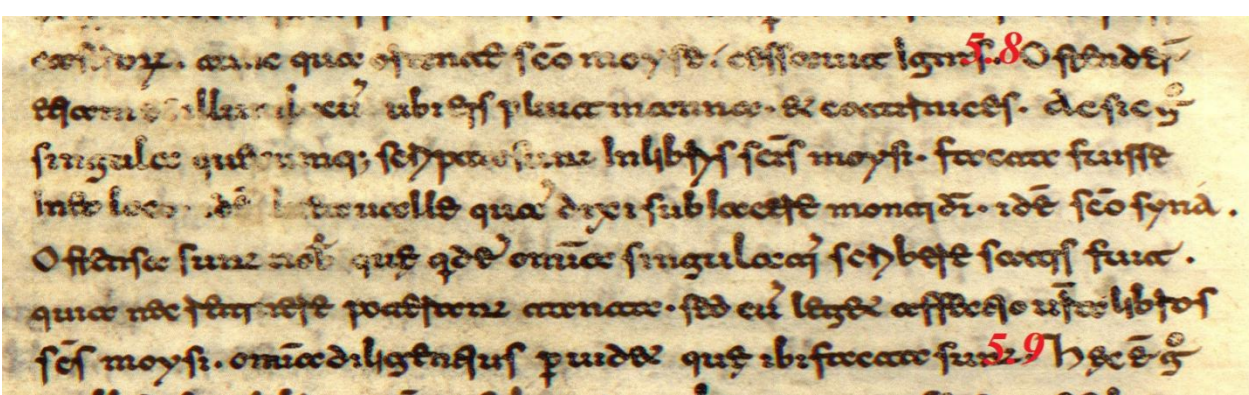 castrorū. tunc qua orante scō moyse. cessauit ignis. 5.8 Ostender̄
etiam illum eū ubi eis pluit manna. et coaturnices. Ac sic g̊
singula que cumq; scripta sunt In libris scīs moysi. facta fuisse
In eo loco. id ē In ea ualle qua dixi subIacere monti dī. idē scō syna.
Ostensa sunt nob̄ quę qdē omīa singulatī scribere satis fuit.
quia nec retinere potest tanta. sed cū leget affectio ur̄a libros
scōs moysi. omīa diligentius puidet quę ibi facta sunt. 5.9 Hęc ē g̊